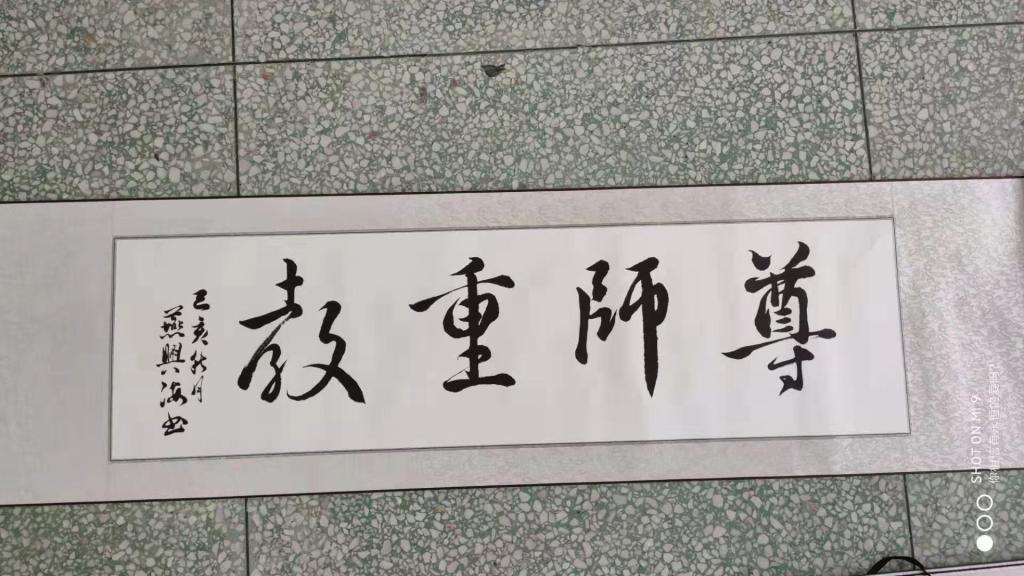 尊師重教
己亥秋月
燕興海书
SHOT ON MI 9